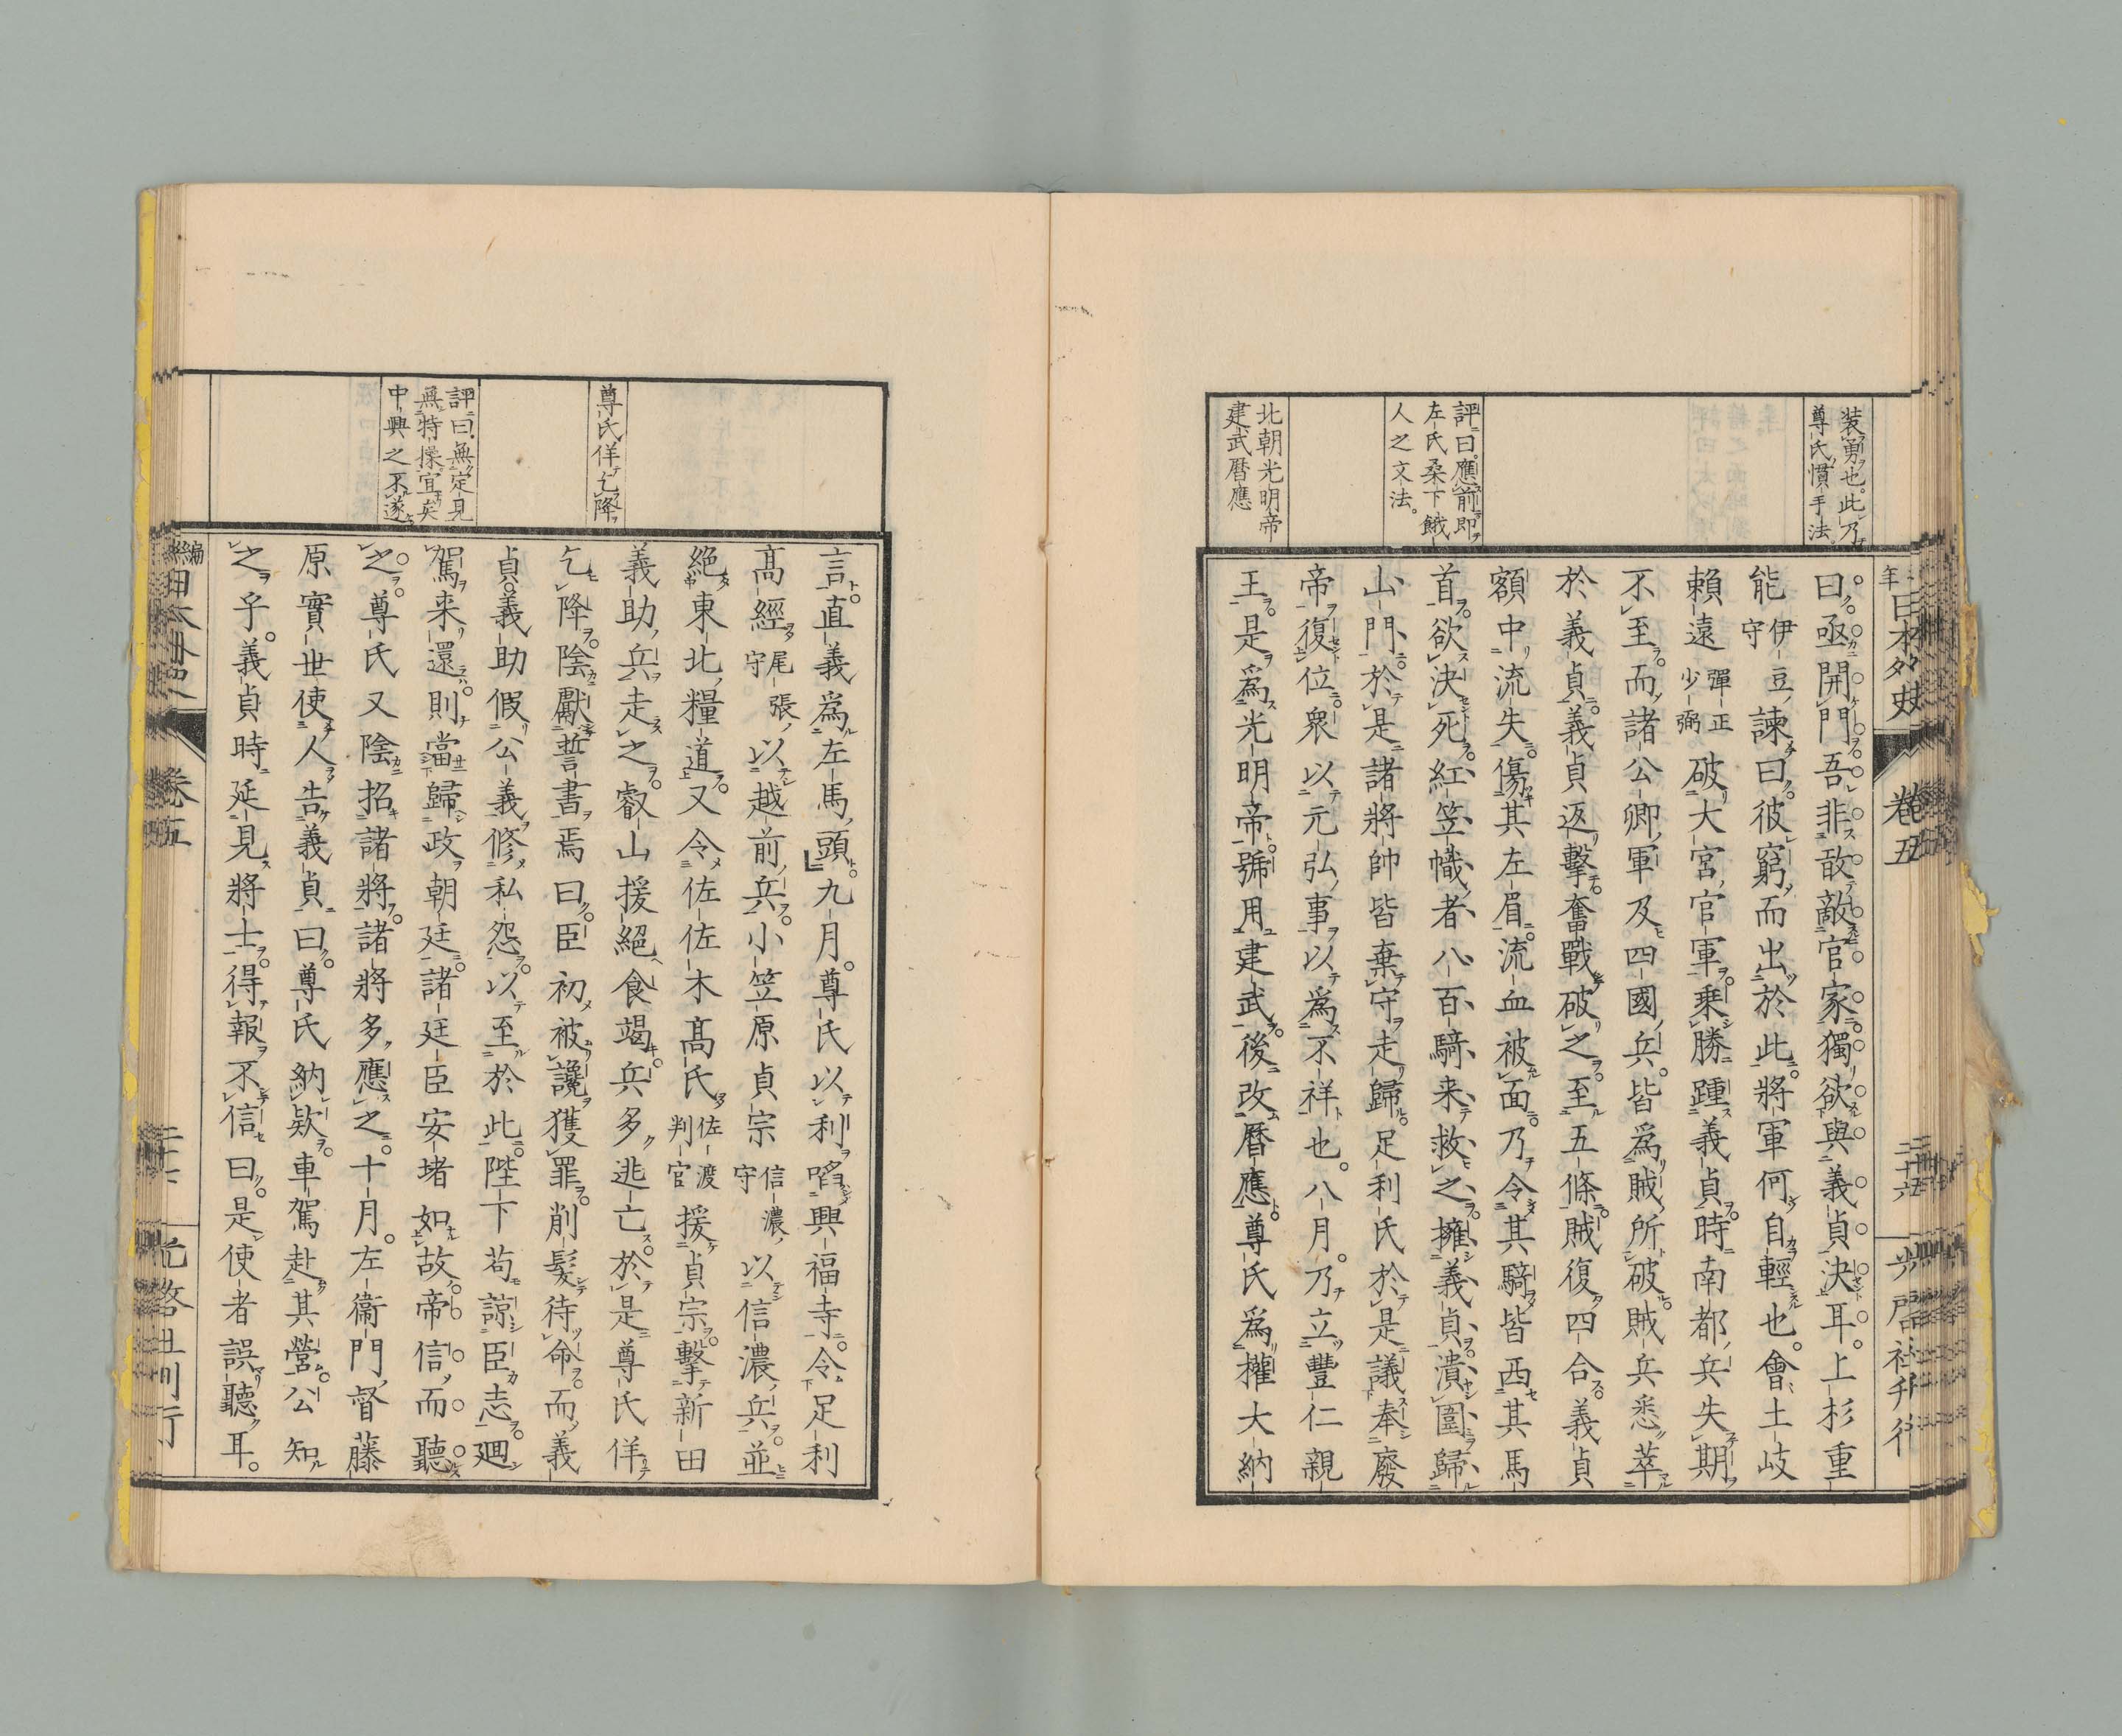 装勇也。此乃
尊氏慣手法。
評曰。應前即
左氏桑下餓
人之文法。
北朝光明帝
建武暦應
日本外史
巻五
二十六
光啓社刋行
曰。亟開門。吾非敢敵官家。獨欲與義貞決耳。上杉重
能伊豆守諫曰。彼窮而出於此。將軍何自輕也。會土岐
賴遠彈正少弼破大宮官軍。乘勝踵義貞。時南都兵失期
不至。而諸公卿軍及四國兵。皆為賊所破。賊兵悉萃
於義貞。義貞返擊奮戰破之。至五條。賊復四合。義貞
額中流失。傷其左眉。流血被面。乃令其騎皆西其馬
首。欲決死。紅笠幟者八百騎来救之。擁義貞潰圍歸
山門。於是諸將帥皆棄守走歸。足利氏於是議奉廢
帝復位。衆以元弘事以為不祥也。八月。乃立豐仁親
王。是為光明帝。號用建武。後改暦應。尊氏為權大納
尊氏佯乞降
評曰。無定見
無特操宜矣
中興之不遂
言。直義為左馬頭。九月。尊氏以利啗興福寺。令足利
高經尾張守以越前兵。小笠原貞宗信濃守以信濃兵。並
絕東北糧道。又令佐佐木高氏佐渡判官援貞宗。擊新田
義助兵走之。叡山援絕食竭。兵多逃亡。於是尊氏佯
乞降。陰獻誓書焉曰。臣初被讒獲罪。削髮待命。而義
貞。義助假公義修私怨。以至於此。陛下苟諒臣志。廻
駕来還。則當歸政朝廷。諸廷臣安堵如故。帝信而聽
之。尊氏又陰招諸將。諸將多應之。十月。左衞門督藤
原實世使人告義貞曰。尊氏納欵。車駕赴其營。公知
之乎。義貞時延見將士。得報不信曰。是使者誤聽耳。
巻五